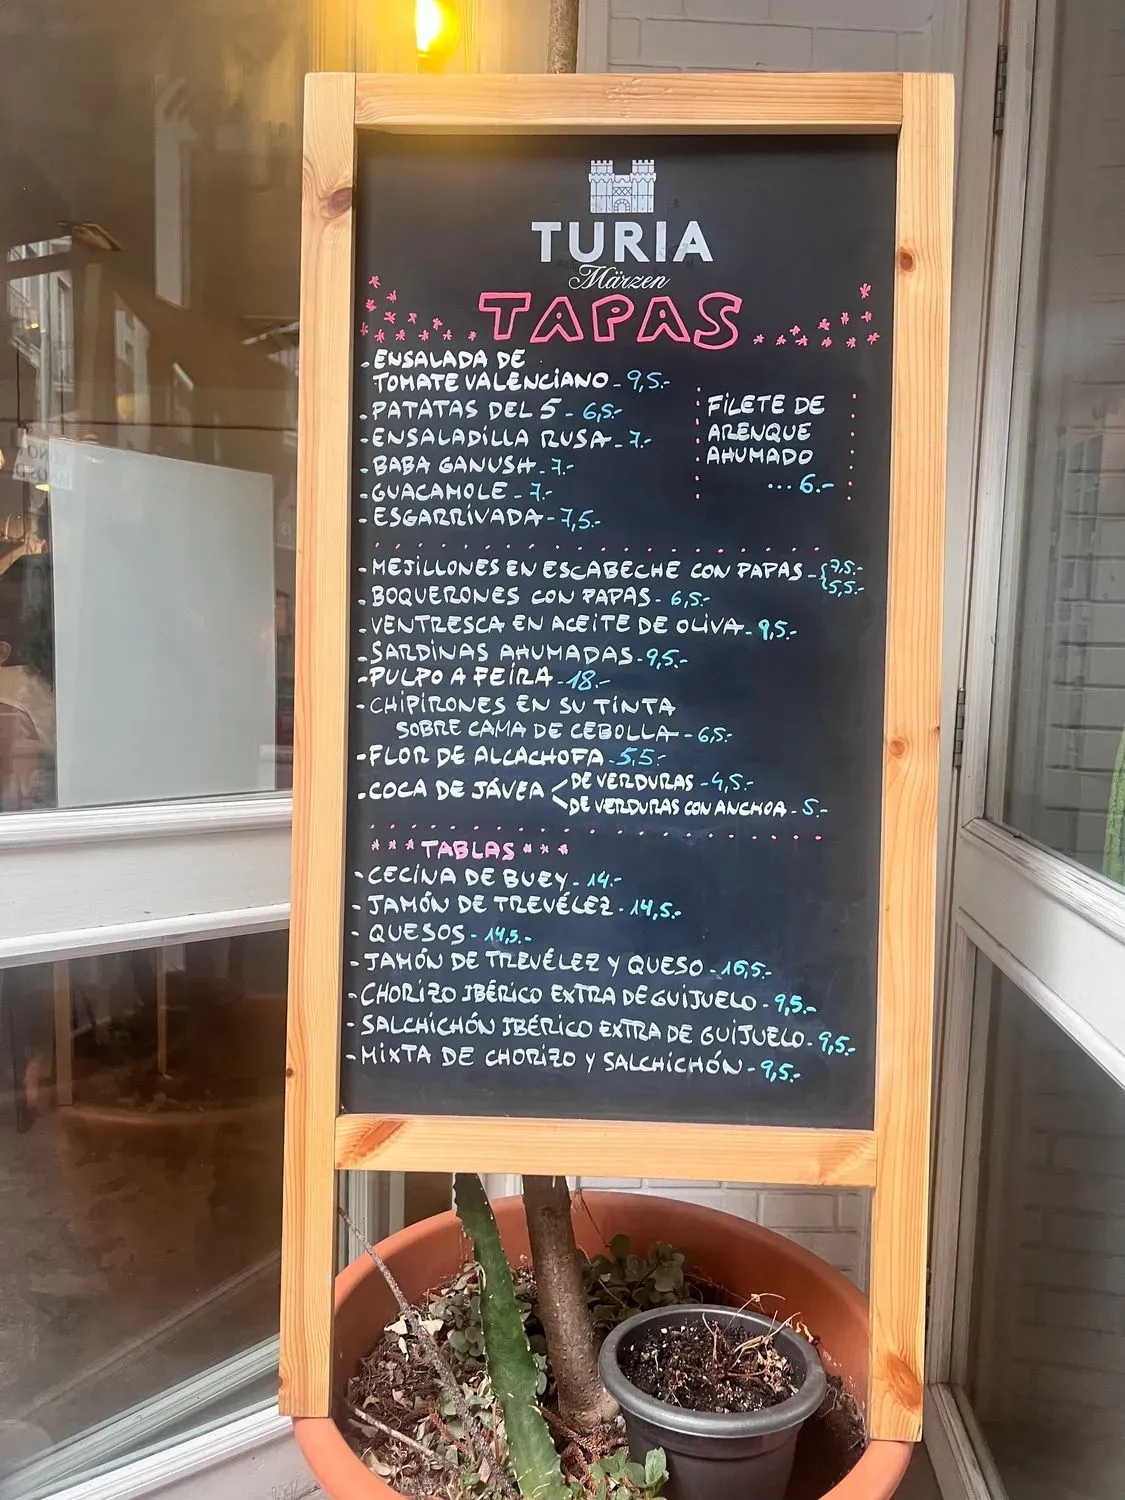 TURIA
Märzen
TAPAS
- ENSALADA DE
TOMATE VALENCIANO - 9,5.-
- PATATAS DEL 5 - 6,5.-
- ENSALADILLA RUSA - 7.-
- BABA GANUSH - 7.-
- GUACAMOLE - 7.-
- ESGARRIVADA - 7,5.-
FILETE DE
ARENQUE
AHUMADO
... 6.-
- MEJILLONES EN ESCABECHE CON PAPAS - { 7,5.-
5,5.-
- BOQUERONES CON PAPAS - 6,5.-
- VENTRESCA EN ACEITE DE OLIVA - 9,5.-
- SARDINAS AHUMADAS - 9,5.-
- PULPO A FEIRA - 18.-
- CHIPIRONES EN SU TINTA
SOBRE CAMA DE CEBOLLA - 6,5.-
- FLOR DE ALCACHOFA - 5,5.-
- COCA DE JÁVEA < DE VERDURAS - 4,5.-
DE VERDURAS CON ANCHOA - 5.-
*** TABLAS ***
- CECINA DE BUEY - 14.-
- JAMÓN DE TREVÉLEZ - 14,5.-
- QUESOS - 14,5.-
- JAMÓN DE TREVÉLEZ Y QUESO - 16,5.-
- CHORIZO IBÉRICO EXTRA DE GUIJUELO - 9,5.-
- SALCHICHÓN IBÉRICO EXTRA DE GUIJUELO - 9,5.-
- MIXTA DE CHORIZO Y SALCHICHÓN - 9,5.-